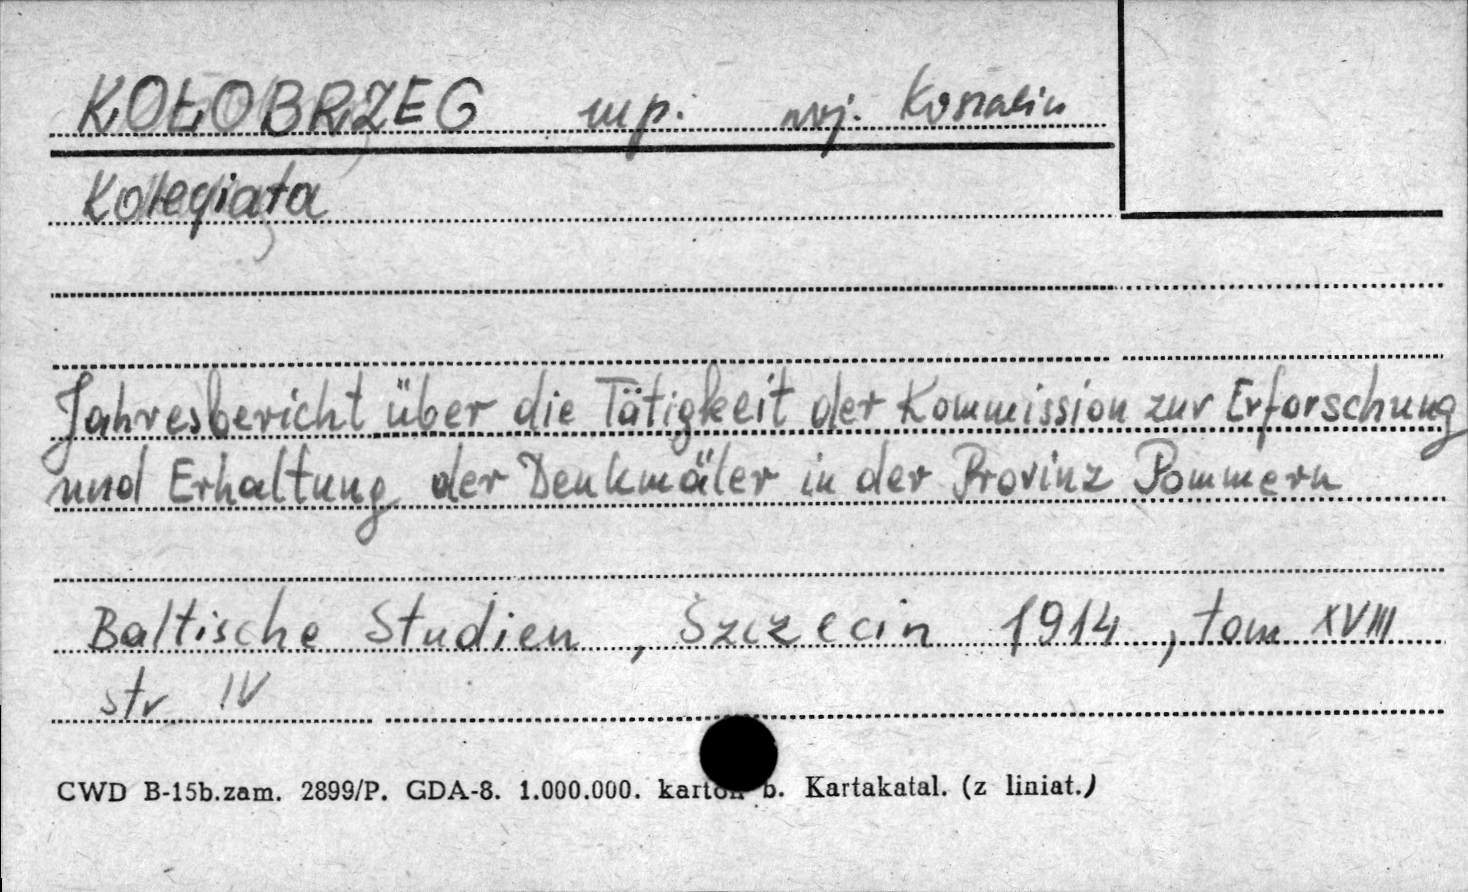 KOŁOBRZEG mp. woj. Koszalin
Kolegiata
Jahresbericht über die Tätigkeit der Kommission zur Erforschung
und Erhaltung der Denkmäler in der Provinz Pommern
Baltische Studien, Szczecin 1914, tom XVIII
str IV
CWD B-15b.zam. 2899/P. GDA-8. 1.000.000. karton b. Kartakatal. (z liniat.)